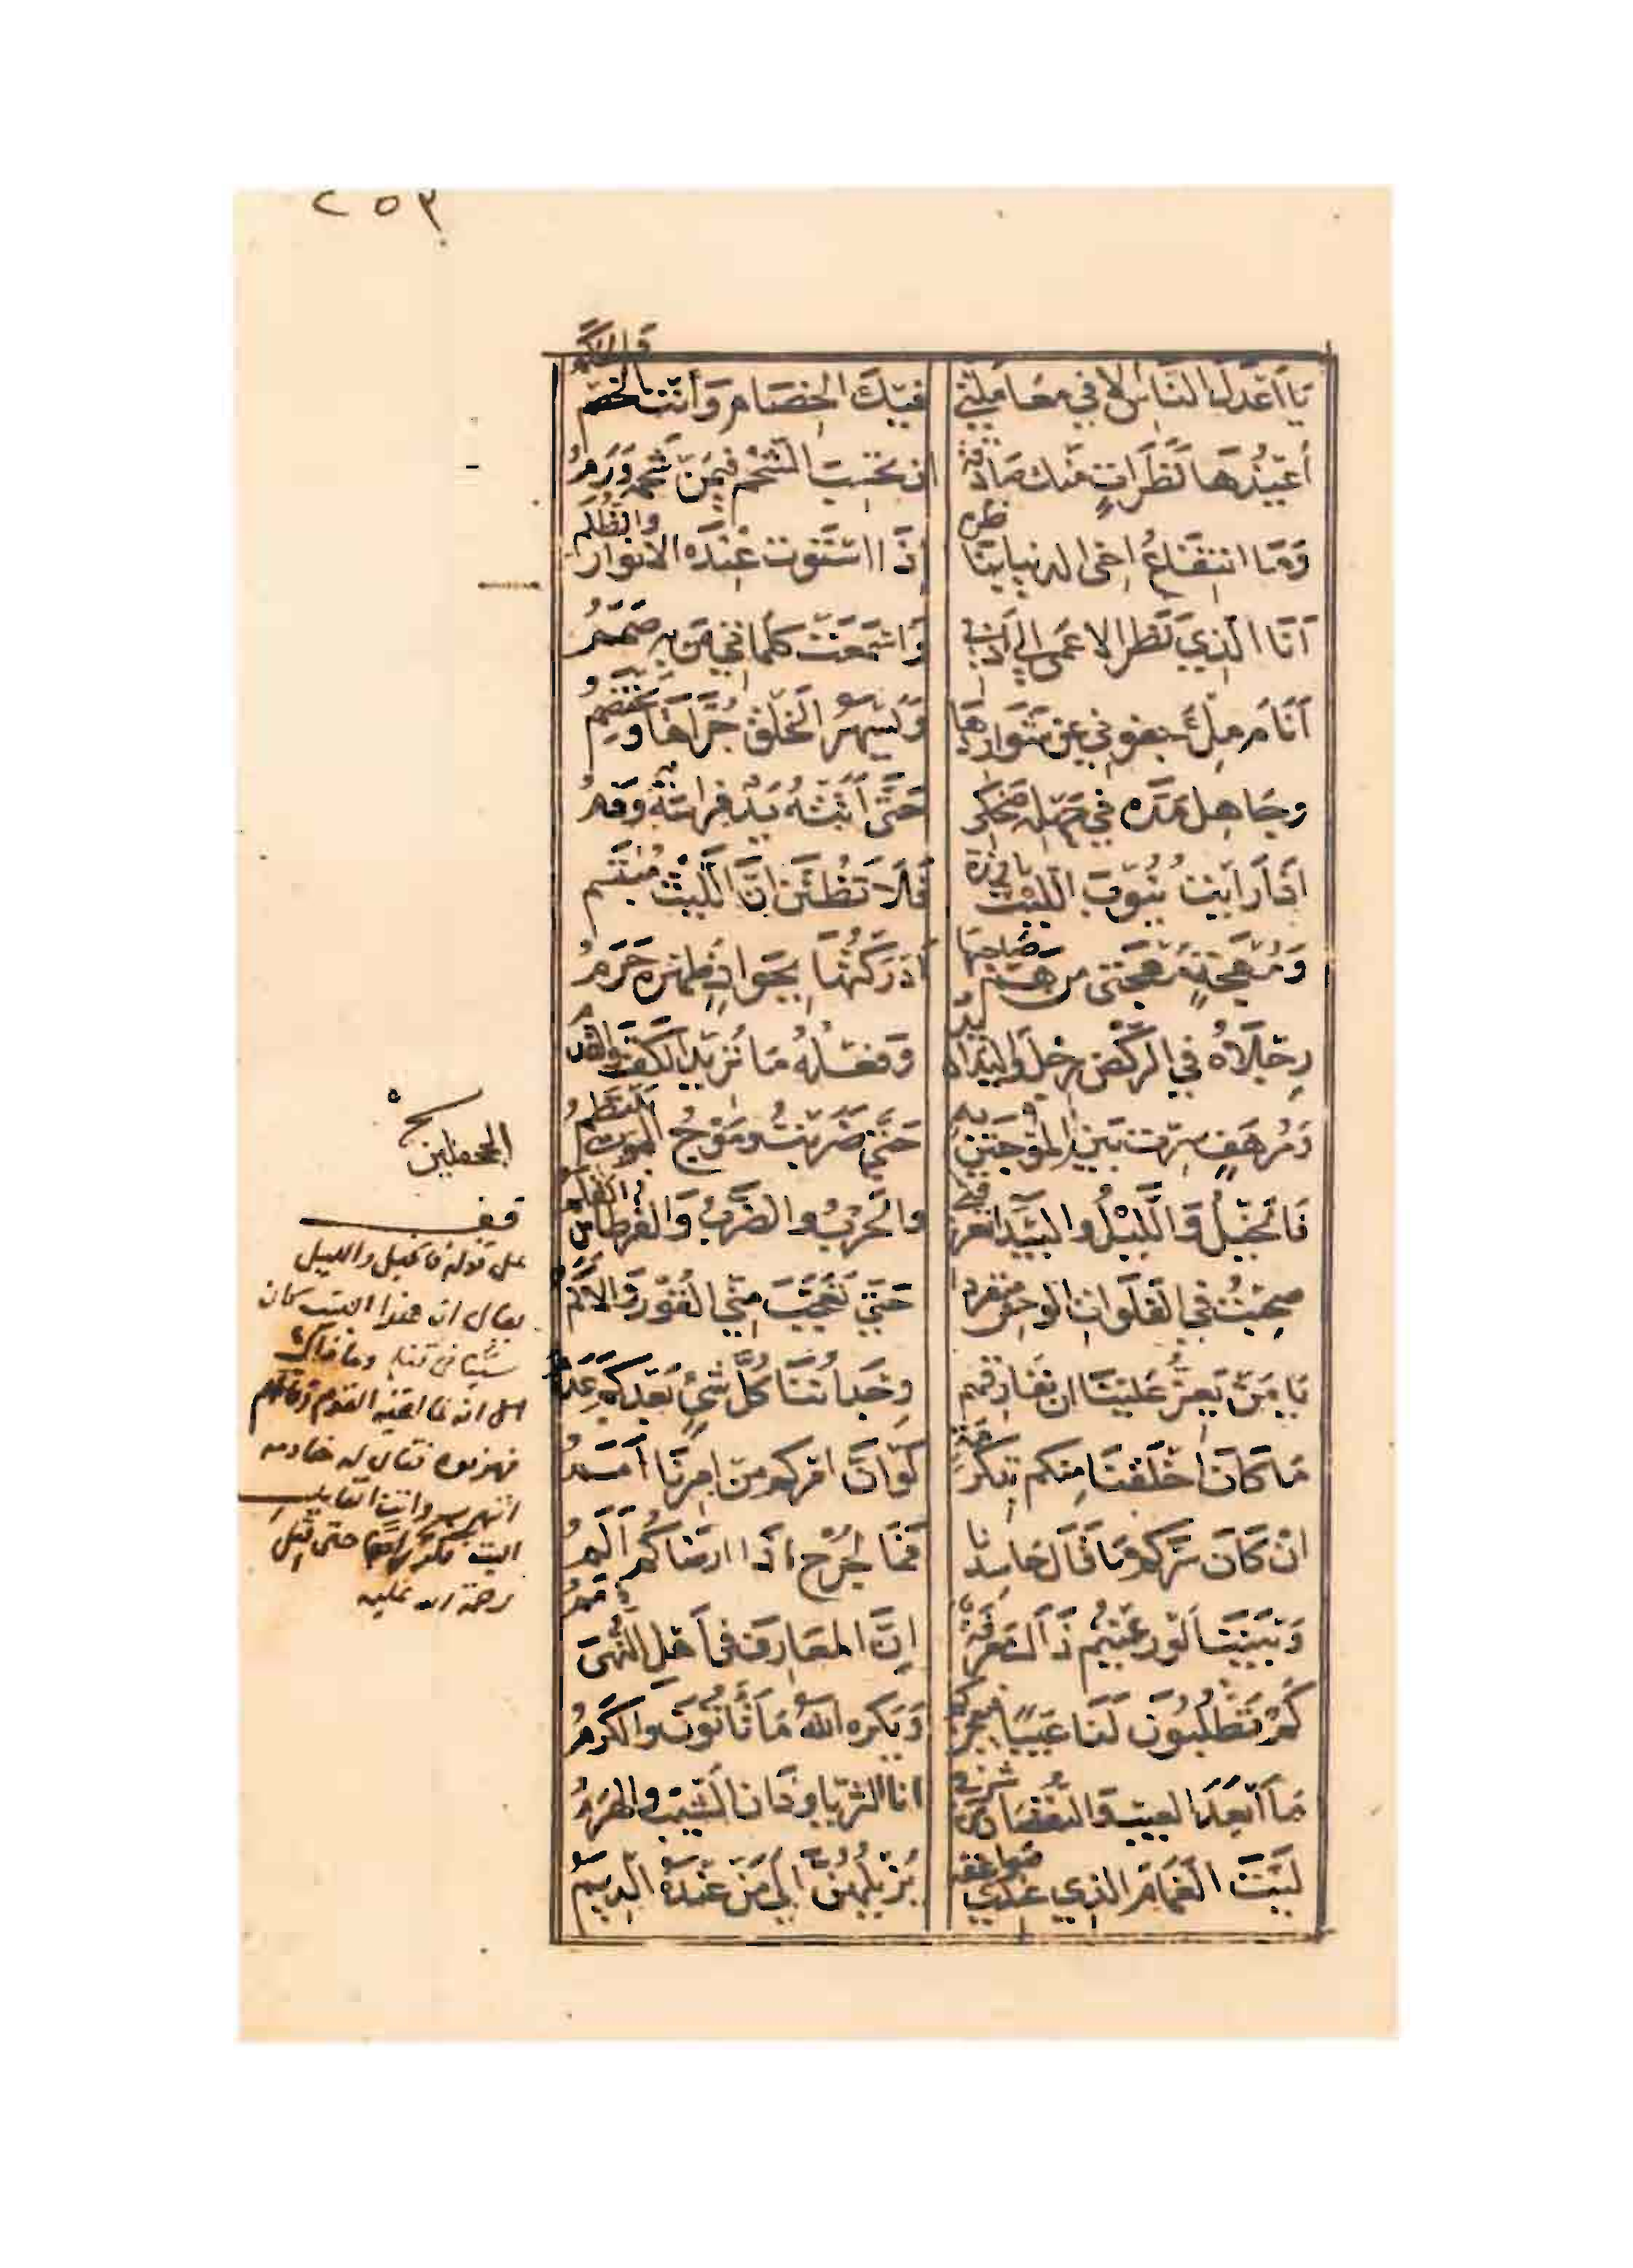 ٢٥٣
يَا أَعْدَلَ النَّاسِ الا في مُعَامَلَتِي فِيكَ الخِصَام وَأنتَ الخَصْمُ وَالحَكَمُ
أُعِيذُهَا نَظَرَاتٍ مِنكَ صَادِقَة ان تحْسِبَ الشَّحْم فيمَن شَحْمُهُ وَرَمُ
وَمَا انتِفَاعُ اخى الدنيا بِنَاظِرِه إذَا اسْتَوَت عِنْدَه الأنوار وَالظُّلَمُ
أنَا الّذِي نَظَر الاعمَى إلى أدَبِي وَاسْمَعَت كَلِمَاتي مَن بِهِ صَمَمُ
أنَام مِلْءَ جفوني عَن شَوَارِدِهَا وَيَسْهَرُ الخَلْق جُرَّاهَا وَيَخْتَصِمُ
وجَاهِل مَدَّه في جَهْلِهِ ضَحِكِي حَتَّى أتَتْهُ يَدٌ فرَاسَةٌ وَفَمُ
اذَا رَأيْتَ نُيُوبَ اللَّيْث بَارِزَة فَلَا تَظُنَّن انَّ اللَّيْثَ مُبْتَسِم
وَمُهْجَةٍ مُهجَتي من هَمّ صَاحِبِهَا أدْرَكْتُهَا بِجَوادٍ ظهره حَرَمُ
رِجْلَاهُ فِي الرَّكْضِ رِجْلٌ وَاليَدَان يَدٌ وَفِعْلُهُ مَا تُرِيد الكَفُّ وَالقَدَمُ
وَمُرْهَفٍ سِرْت بَيْنَ المَوْجَتَيْنِ بِهِ حَتَّى ضَرَبْتُ وَمَوْجُ المَوت يَلْتَطِمُ
فَالخَيْلُ وَاللَّيْلُ وَالبَيْدَا تعرفني والحَرْبُ والضَّرْبُ وَالقرطاس وَالقَلَمُ
صَحِبْتُ فِي الفَلَوَات الوحش مُنفرِدًا حَتَّى تَعَجَّبَ مِنّي القُور وَالأَكَمُ
يَا مَن يَعِزُّ عَلَينَا ان نُفَارِقَهم وِجْدَانُنَا كُلَّ شَيْءٍ بَعْدَكُم عَدَمُ
مَا كَانَ اخْلَقنَا مِنكم بتكرمَة لَوْ انَّ امركم من امرِنَا أمَمُ
ان كَانَ سَرَّكُم مَا قَالَ حَاسِدنا فَمَا لجُرْح اذَا ارضَاكُم أَلَمُ
وَبَيْنَنَا لَو رَعَيْتُم ذَاكَ مَعْرِفَةٌ إنَّ المَعَارِف فى أهْلِ النُّهَى ذِمَمُ
كَمْ تَطْلُبُونَ لَنَا عَيْبًا فيعجزكم وَيَكره اللهُ مَا تَأتُونَ وَالكَرَمُ
مَا أبْعَدَ العيب وَالنقْصَان من شرفي انا الثريا وَذَان الشّيب والهَرَمُ
لَيْتَ الغَمَامَ الذِي عِندِي صَوَاعِقُهُ يُزِيلُهُنّ إلَى مَن عِنْدَهُ الدِّيَمُ
الجحفلين
قف
على قوله فالخيل والليل
يقال ان هذا البيت كان
سببا فى قتله وما ذاك
فهزموه فقال له خادمه
رحمة الله عليه